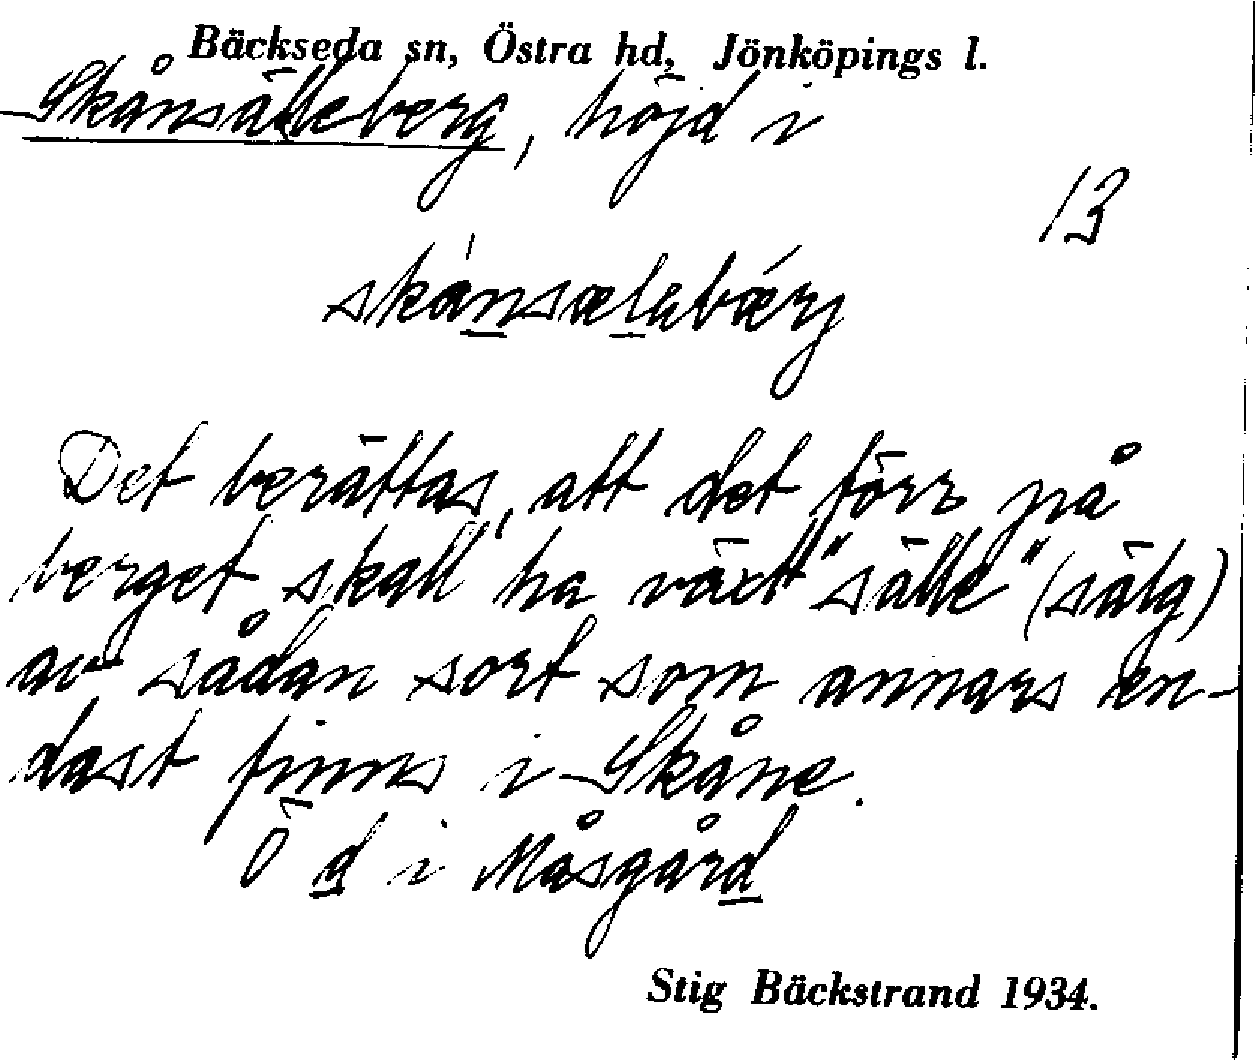 Bäckseda sn, Östra hd, Jönköpings l.
Skånsälleberg, höjd i
13
skånsæləbærj
Det berättas, att det förr på
berget skall ha växt "sälle" (sälg)
av sådan sort som annars en-
dast finns i Skåne.
Ö d i Måsgård
Stig Bäckstrand 1934.